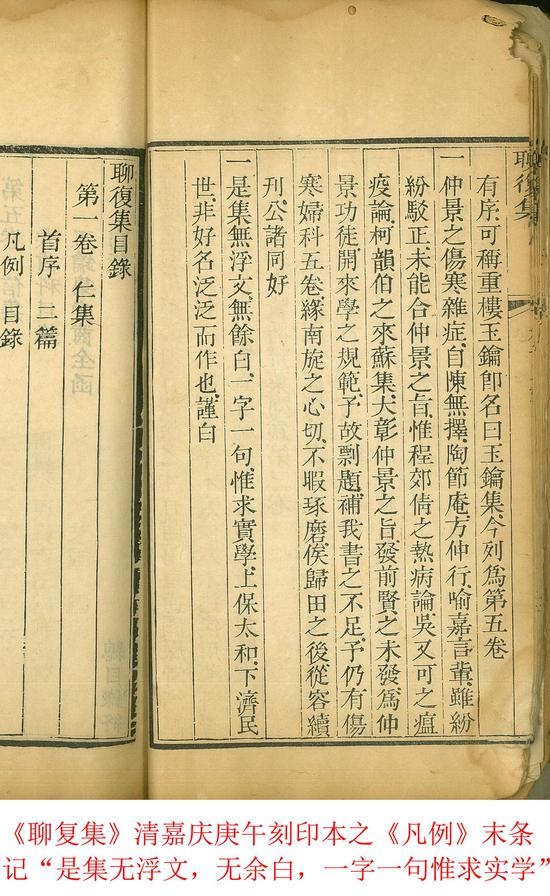 聊復集
有序、可稱重樓玉鑰卽名曰玉鑰集、今列爲第五卷
一仲景之傷寒雜症、自陳無擇、陶節庵、方仲行、喻嘉言輩、雖紛
紛駁正、未能合仲景之旨、惟程郊倩之熱病論、吳又可之瘟
疫論、柯韻伯之來蘇集、大彰仲景之旨、發前賢之未發、爲仲
景功徒、開來學之規範、予故剽題、補我書之不足、予仍有傷
寒婦科五卷、緣南旋之心切、不暇琢磨、俟歸田之後從容續
刊公諸同好
一是集無浮文、無餘白、一字一句、惟求實學、上保太和、下濟民
世、非好名泛泛而作也、謹白
聊復集目錄
第一卷 仁集
首序 二篇
凡例 目錄
《聊复集》清嘉庆庚午刻印本之《凡例》末条
记“是集无浮文，无余白，一字一句惟求实学”